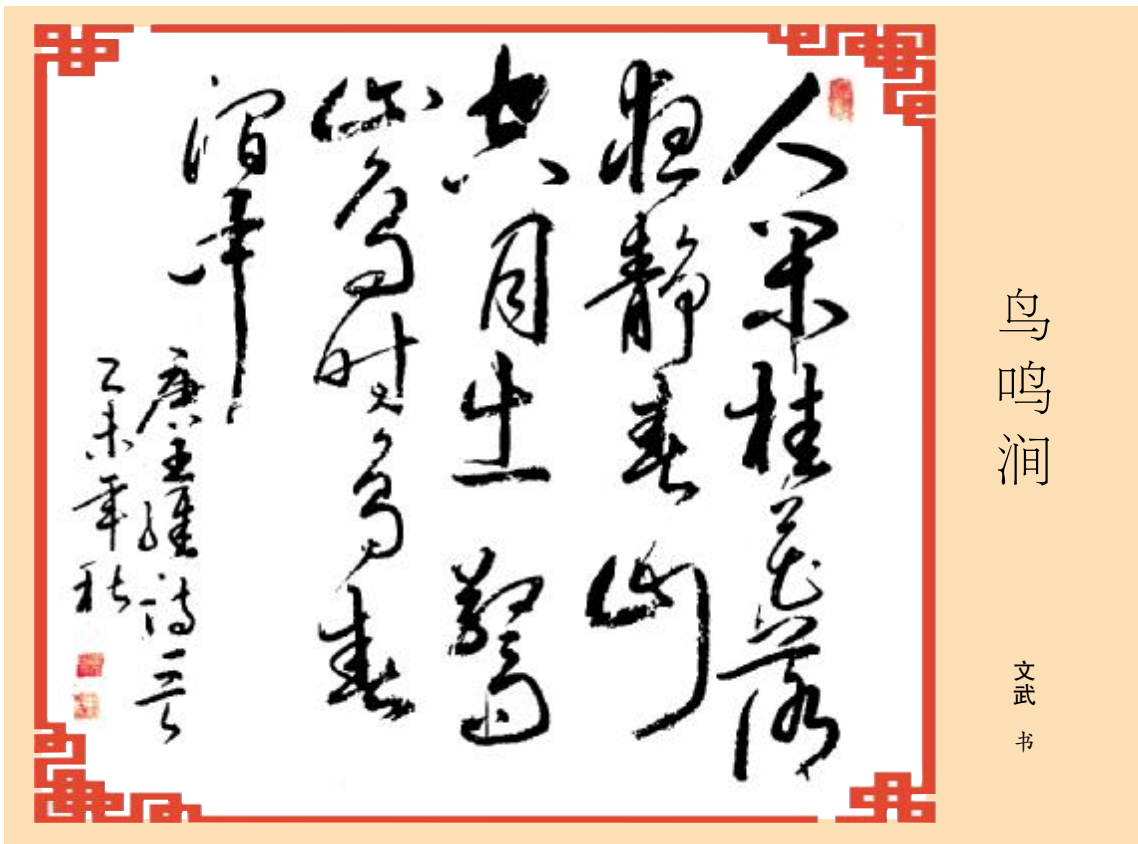 人闲桂花落
夜静春山
空月出驚
山鸟时鸣春
涧中
唐王維诗一首
乙未年秋
鸟鸣涧
文武 书